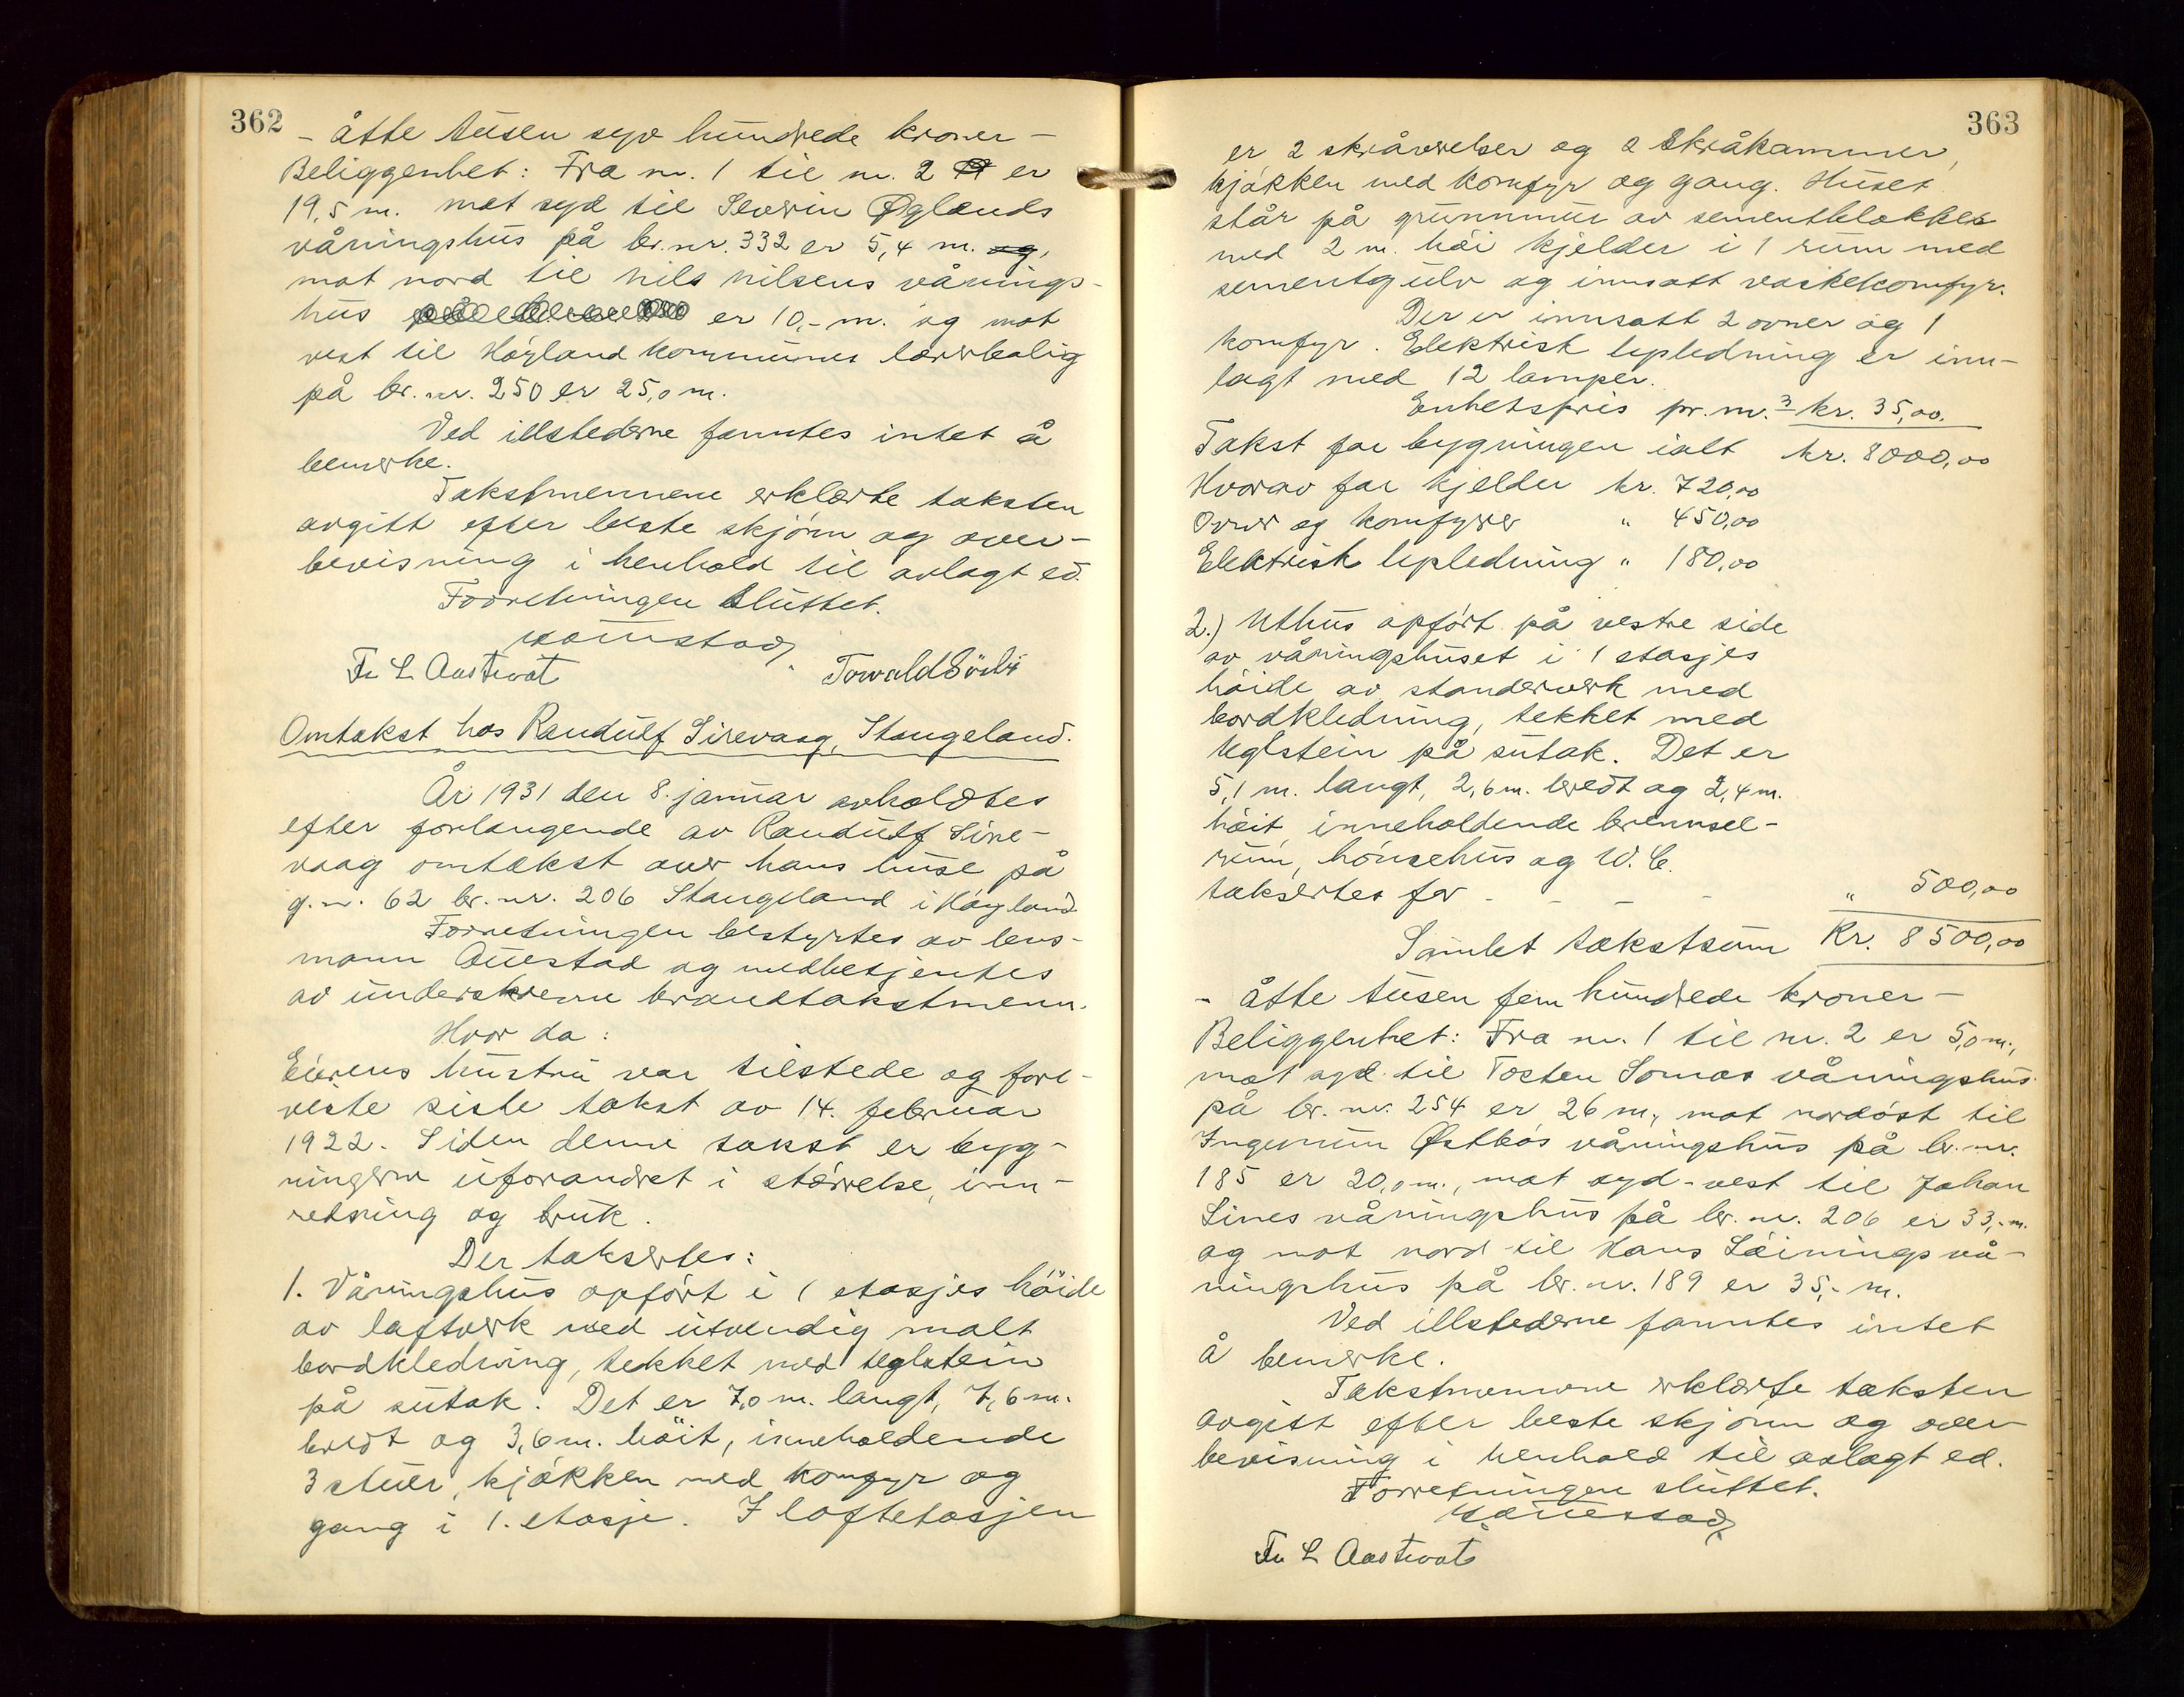 362
- åtte tusen syv hundrede kroner -
Beliggenhet: Fra nr. 1 til nr. 2 er
19,5 m. mot syd til Severin Øglænds
våningshus på br.nr. 332 er 5,4 m. og,
mot nord til Nils Nilsens vånings-
hus er 10,- m. og mot
vest til Høyland kommunes lærerbolig
på br. nr. 250 er 25,0 m.
Ved ildstederne fanntes intet å
bemerke.
Takstmennene erklærte taksten
avgitt efter beste skjønn og over-
bevisning i henhold til avlagt ed.
Forretningen sluttet.
Auestad
Fr L Aastveit Torvald Sörbö
Omtakst hos Randulf Sirevaag, Stangeland.
År 1931 den 8. januar avholdtes
efter forlangende av Randulf Sire-
vaag omtakst over hans huse på
g.nr. 62 br. nr. 206 Stangeland i Høyland
Forretningen bestyrtes av lens-
mann Auestad og medbetjentes
av underskrevne branntakstmenn.
Hvor da:
Eierens hustru var tilstede og fore-
viste siste takst av 14. februar
1922. Siden denne takst er byg-
ningerne uforandret i størrelse, inn-
redning og bruk.
Der taksertes:
1. Våningshus opført i 1 etasjes höide
av laftverk med utvendig malt
bordkledning, tekket med teglstein
på sutak. Det er 7,0 m. langt, 7,6 m.
bredt og 3,6 m. höit, inneholdende
3 stuer, kjøkken med komfyr og
gang i 1. etasje. I loftetasjen
363
er 2 skråverelser og 2 skråkammer,
kjøkken med komfyr og gang. Huset
står på grunnmur av sementblokker
med 2 m. høi kjelder i 1 rum med
sementgulv og innsatt vaskekomfyr.
Der er innsatt 2 ovner og 1
komfyr. Elektrisk lysledning er inn-
lagt med 12 lamper.
Enhetspris pr. m.³ kr. 35,00.
Takst for bygningen ialt kr. 8000,00
Hvorav for kjelder kr. 720,00
Ovner og komfyrer " 450,00
Elektrisk lysledning " 180,00
2.) Uthus opført på vestre side
av våningshuset i 1 etasjes
høide av standerverk med
bordkledning, tekket med
teglstein på sutak. Det er
5,1 m. langt, 2,6 m. bredt og 2,4 m.
høit, inneholdende brennsel-
rum, hönsehus og W.C.
taksertes for - - - - " 500,00
Samlet takstsum Kr. 8500,00
- åtte tusen fem hundrede kroner -
Beliggenhet: Fra nr. 1 til nr. 2 er 5,0 m.,
mot syd til Tosten Somas våningshus
på br. nr. 254 er 26 m., mot nordöst til
Østbøs våningshus på br. nr.
185 er 20,0 m., mot syd-vest til Johan
Lines våningshus på br. nr. 206 er 33,- m.
og mot nord til Hans Löinings vå-
ningshus på br. nr. 189 er 35,- m.
Ved ildstederne fanntes intet
å bemerke.
Takstmennene erklærte taksten
avgitt efter beste skjönn og over-
bevisning i henhold til avlagt ed.
Forretningen sluttet.
Auestad
Fr L Aastveit